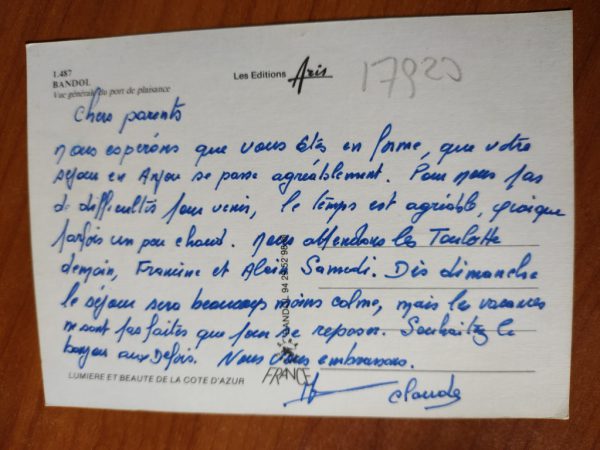 1.487
BANDOL
Vue générale du port de plaisance
Les Editions Aris
17920
Chers parents
nous espérons que vous êtes en forme, que votre
séjour en Anjou se passe agréablement. Pour nous pas
de difficultés pour venir, le temps est agréable, quoique
parfois un peu chaud. nous attendons les Toulotte
demain, Francine et Alain Samedi. Dès dimanche
le séjour sera beaucoup moins calme, mais les vacances
ne sont pas faites que pour se reposer. Souhaitez le
bonjour aux Defois. Nous vous embrassons.
LUMIERE ET BEAUTE DE LA COTE D'AZUR
FRANCE
Claude
BANDOL 94 29